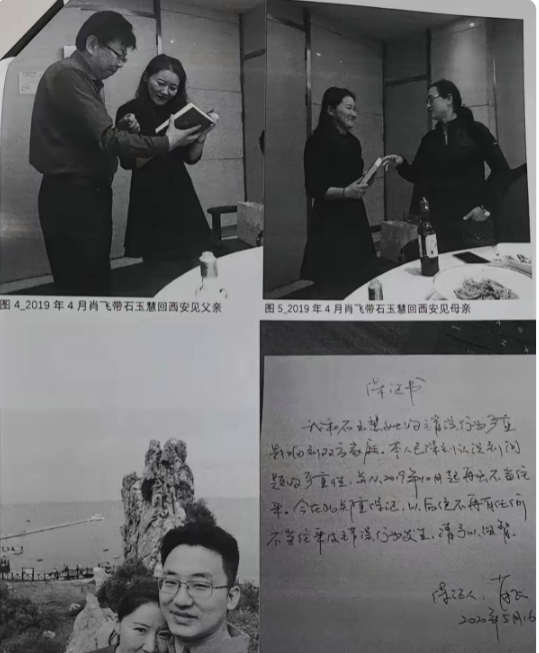 图 4_2019 年 4 月肖飞带石玉慧回西安见父亲
图 5_2019 年 4 月肖飞带石玉慧回西安见母亲
保证书
我和石玉慧的错误行为严重
影响到双方家庭。本人已深刻认识到问
题的严重性，并从2019年10月起再无不当往
来。今在此郑重保证，以后绝不再有任何
不当往来及错误行为发生，请予以监督。
保证人：肖飞
2020年5月16